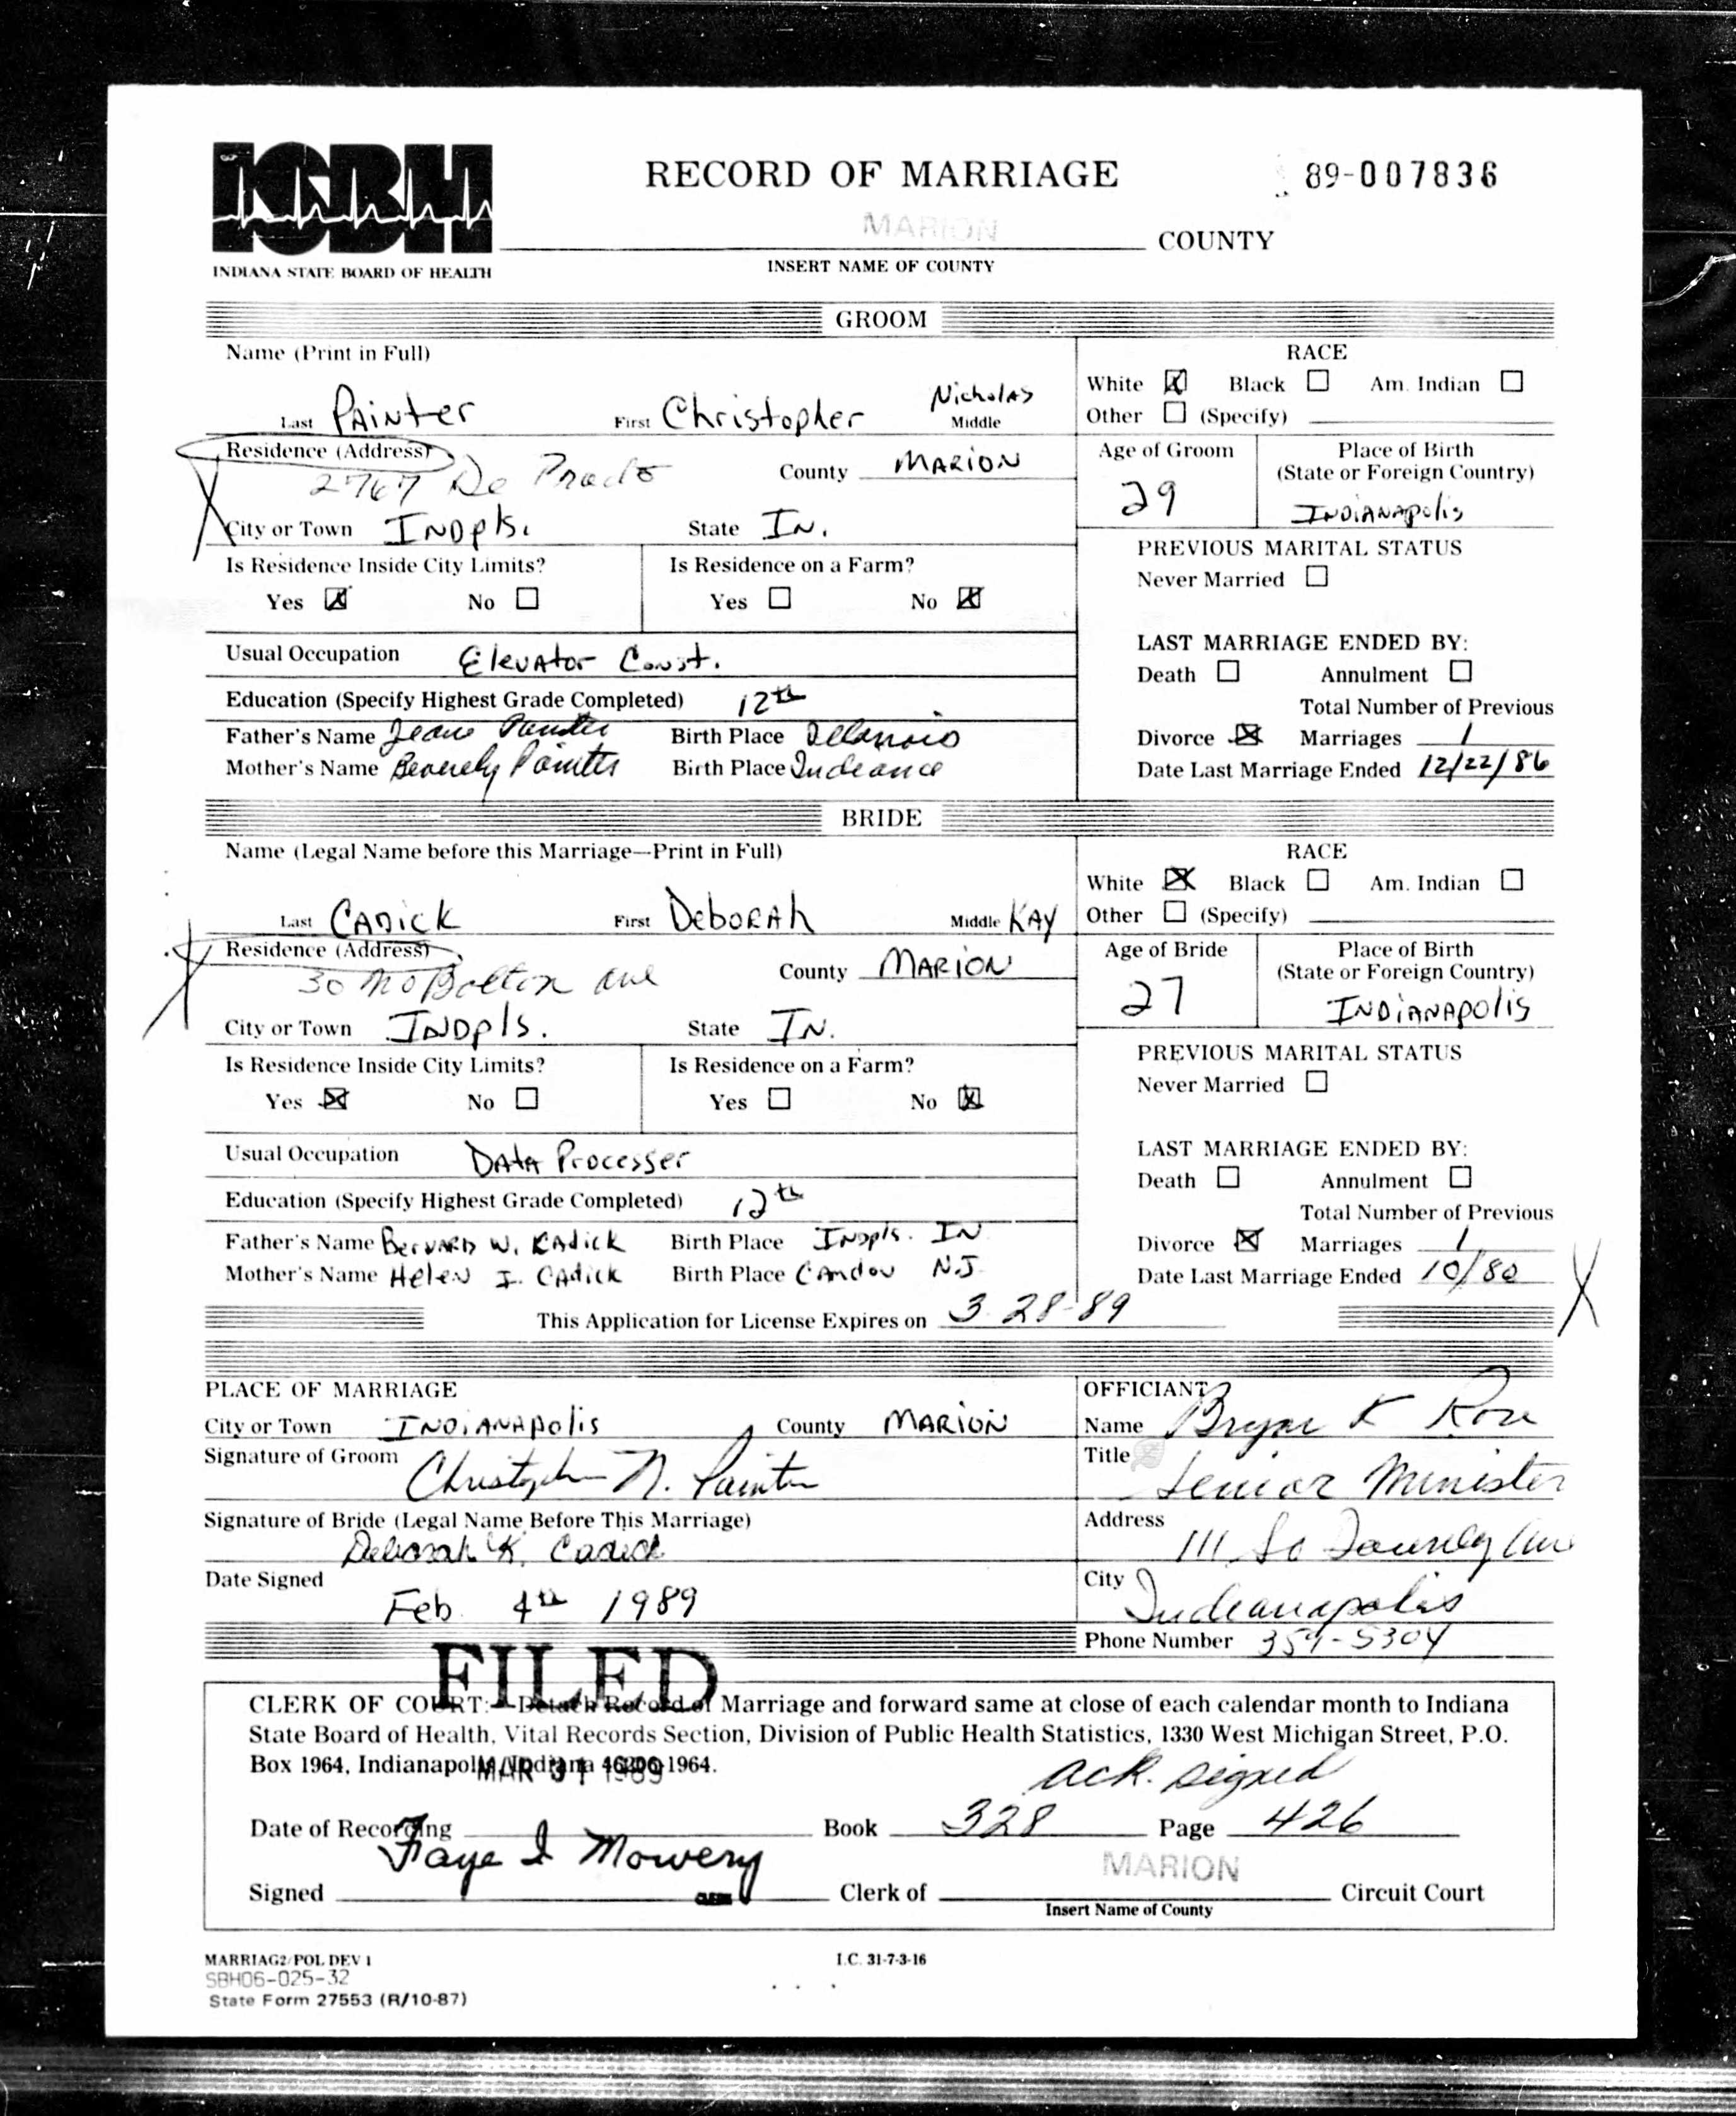 ISBH
INDIANA STATE BOARD OF HEALTH
RECORD OF MARRIAGE
89-007836
MARION COUNTY
INSERT NAME OF COUNTY
GROOM
Name (Print in Full)
Last PAiNter First Christopher Nicholas Middle
RACE
White ☒ Black ☐ Am. Indian ☐
Other ☐ (Specify)
Residence (Address) 2767 De Prado County MARION
City or Town INDpls. State IN.
Age of Groom 29
Place of Birth
(State or Foreign Country)
INDIANApolis
Is Residence Inside City Limits? Is Residence on a Farm?
Yes ☒ No ☐ Yes ☐ No ☒
PREVIOUS MARITAL STATUS
Never Married ☐
Usual Occupation ElevAtor Const.
Education (Specify Highest Grade Completed) 12th
Father's Name Painter Birth Place
Mother's Name Beverely Birth Place
LAST MARRIAGE ENDED BY:
Death ☐ Annulment ☐
Total Number of Previous
Divorce ☒ Marriages 1
Date Last Marriage Ended 12/22/86
BRIDE
Name (Legal Name before this Marriage—Print in Full)
Last CADICK First DeboRAh Middle KAY
RACE
White ☒ Black ☐ Am. Indian ☐
Other ☐ (Specify)
Residence (Address) 30 No Bolton Ave County MARION
City or Town INDpls. State IN.
Age of Bride 27
Place of Birth
(State or Foreign Country)
INDiANAPolis
Is Residence Inside City Limits? Is Residence on a Farm?
Yes ☒ No ☐ Yes ☐ No ☒
PREVIOUS MARITAL STATUS
Never Married ☐
Usual Occupation DAtA Processer
Education (Specify Highest Grade Completed) 12th
Father's Name W. CAdick Birth Place INDpls. IN
Mother's Name HeleN I. CAdick Birth Place N.J.
LAST MARRIAGE ENDED BY:
Death ☐ Annulment ☐
Total Number of Previous
Divorce ☒ Marriages 1
Date Last Marriage Ended 10/80
This Application for License Expires on 3-28-89
PLACE OF MARRIAGE
City or Town INDiANApolis County MARION
Signature of Groom Christopher N. Painter
Signature of Bride (Legal Name Before This Marriage)
Deborah K. Cadick
Date Signed
Feb. 4th 1989
OFFICIANT
Name Bryan K Rose
Title Senior Minister
Address 111 So Ave
City Indianapolis
Phone Number 359-5304
FILED
CLERK OF COURT: Detach Record of Marriage and forward same at close of each calendar month to Indiana
State Board of Health, Vital Records Section, Division of Public Health Statistics, 1330 West Michigan Street, P.O.
Box 1964, Indianapolis, Indiana 46206-1964.
MAR 31 1989
ack. signed
Date of Recording Book 328 Page 426
Signed Faye I Mowery CLERK Clerk of MARION Circuit Court
Insert Name of County
MARRIAG2/POL DEV 1
I.C. 31-7-3-16
SBH06-025-32
State Form 27553 (R/10-87)